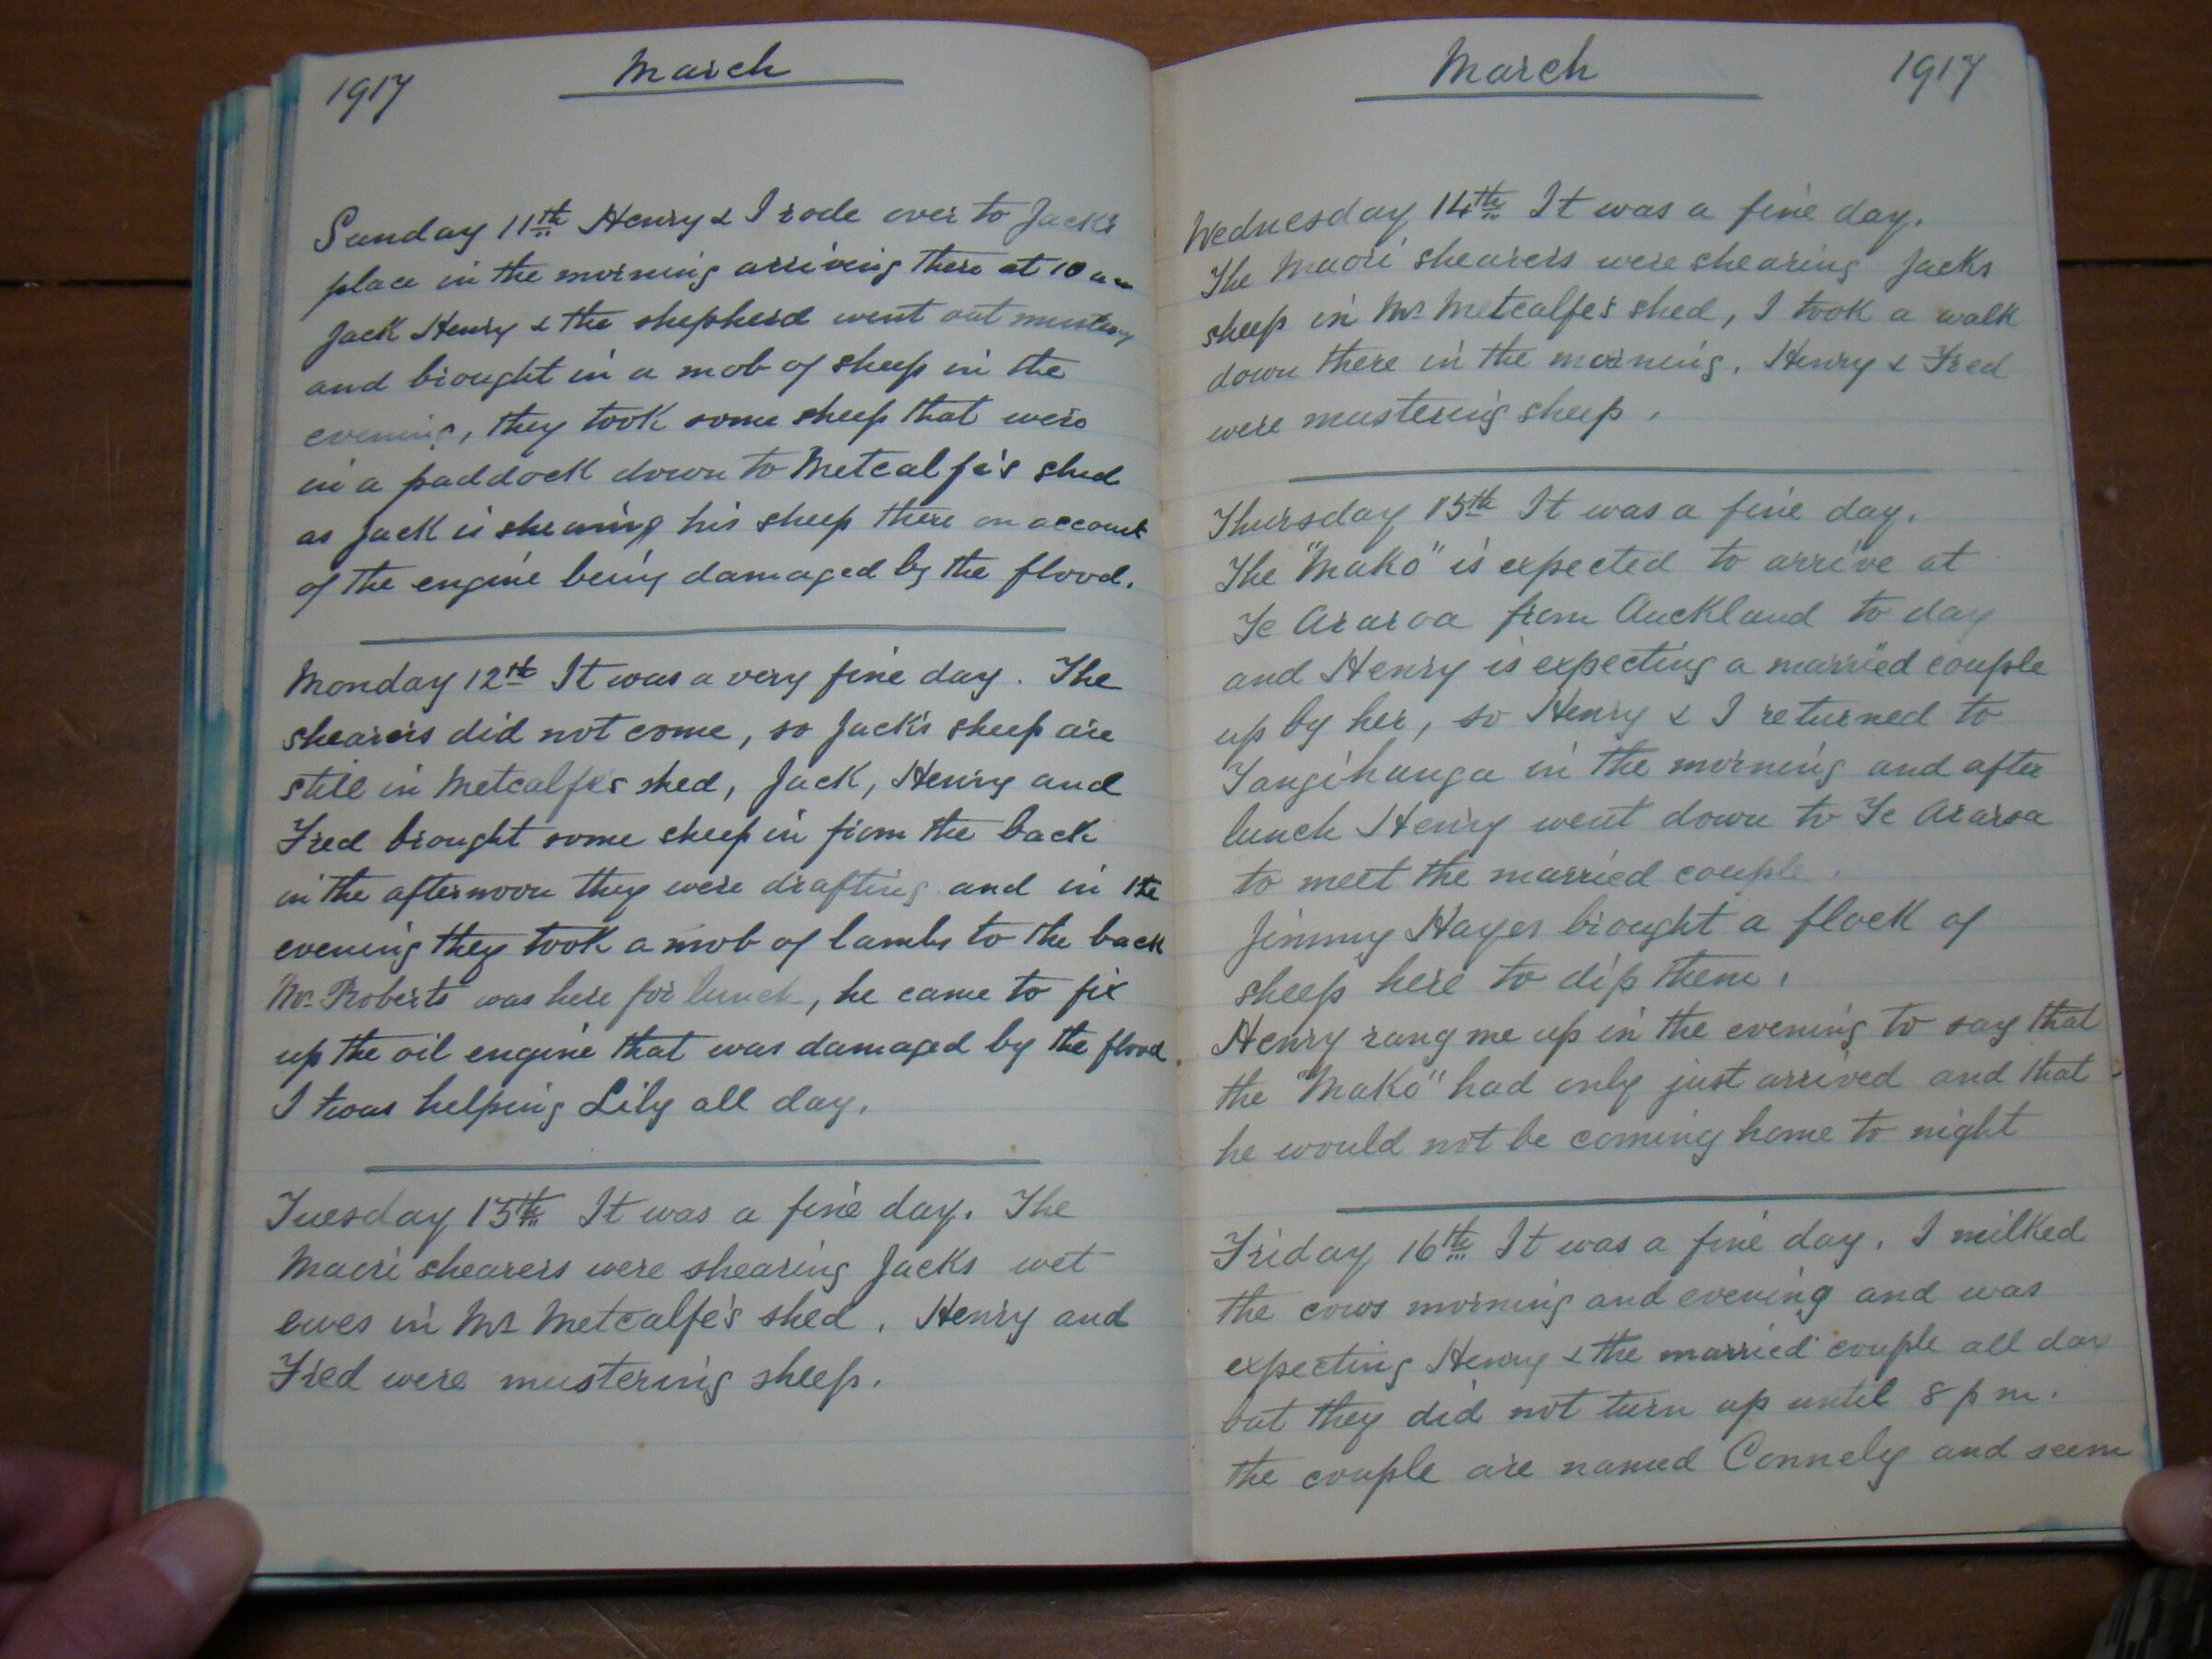 1917
March
Sunday 11th Henry & I rode over to Jack's
place in the morning arriving there at 10 am
Jack Henry & the shepherd went out mustering
and brought in a mob of sheep in the
evening, they took some sheep that were
in a paddock down to Metcalfe's shed
as Jack is shearing his sheep there on account
of the engine being damaged by the flood.
Monday 12th It was a very fine day. The
shearers did not come, so Jack's sheep are
still in Metcalfe's shed, Jack, Henry and
Fred brought some sheep in from the back
in the afternoon they were drafting and in the
evening they took a mob of lambs to the back
Mr. Roberts was here for lunch, he came to fix
up the oil engine that was damaged by the flood.
I was helping Lily all day.
Tuesday 13th It was a fine day. The
Maori shearers were shearing Jacks wet
ewes in Mr Metcalfe's shed. Henry and
Fred were mustering sheep.
March
1917
Wednesday 14th It was a fine day.
The Maori shearers were shearing Jacks
sheep in Mr Metcalfe's shed, I took a walk
down there in the morning. Henry & Fred
were mustering sheep.
Thursday 15th It was a fine day.
The "Mako" is expected to arrive at
Te Araroa from Auckland to day
and Henry is expecting a married couple
up by her, so Henry & I returned to
Tangihanga in the morning and after
lunch Henry went down to Te Araroa
to meet the married couple.
Jimmy Hayes brought a flock of
sheep here to dip them.
Henry rang me up in the evening to say that
the "Mako" had only just arrived and that
he would not be coming home to night
Friday 16th It was a fine day. I milked
the cows morning and evening and was
expecting Henry & the married couple all day
but they did not turn up until 8 p m.
the couple are named Connely and seem